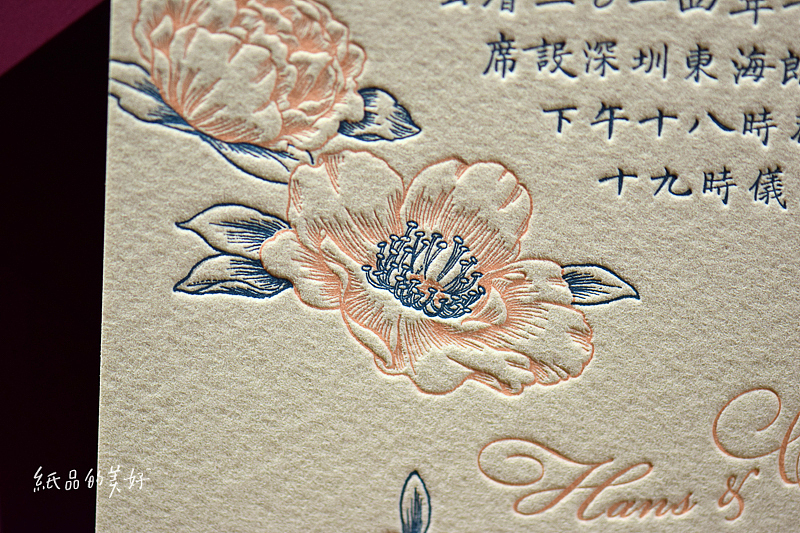 二〇二四年
席設深圳東海郎
下午十八時
十九時儀
Hans &
紙品的美好